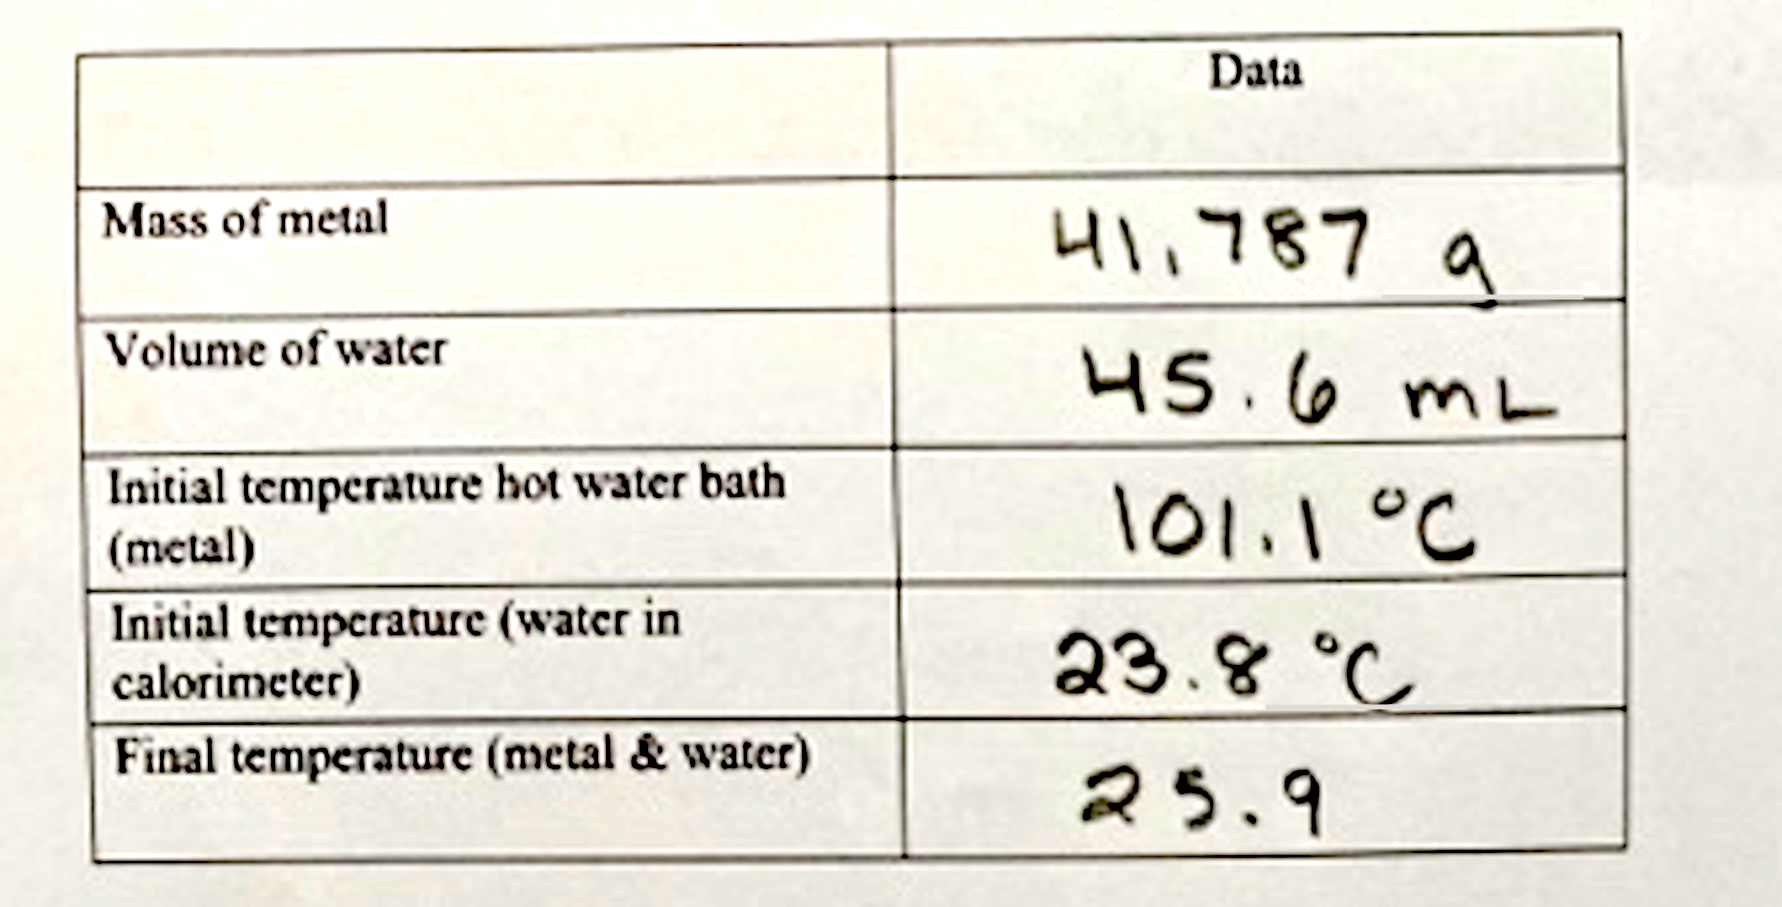 Data
Mass of metal 41.787 g
Volume of water 45.6 mL
Initial temperature hot water bath
(metal) 101.1 °C
Initial temperature (water in
calorimeter) 23.8 °C
Final temperature (metal & water) 25.9